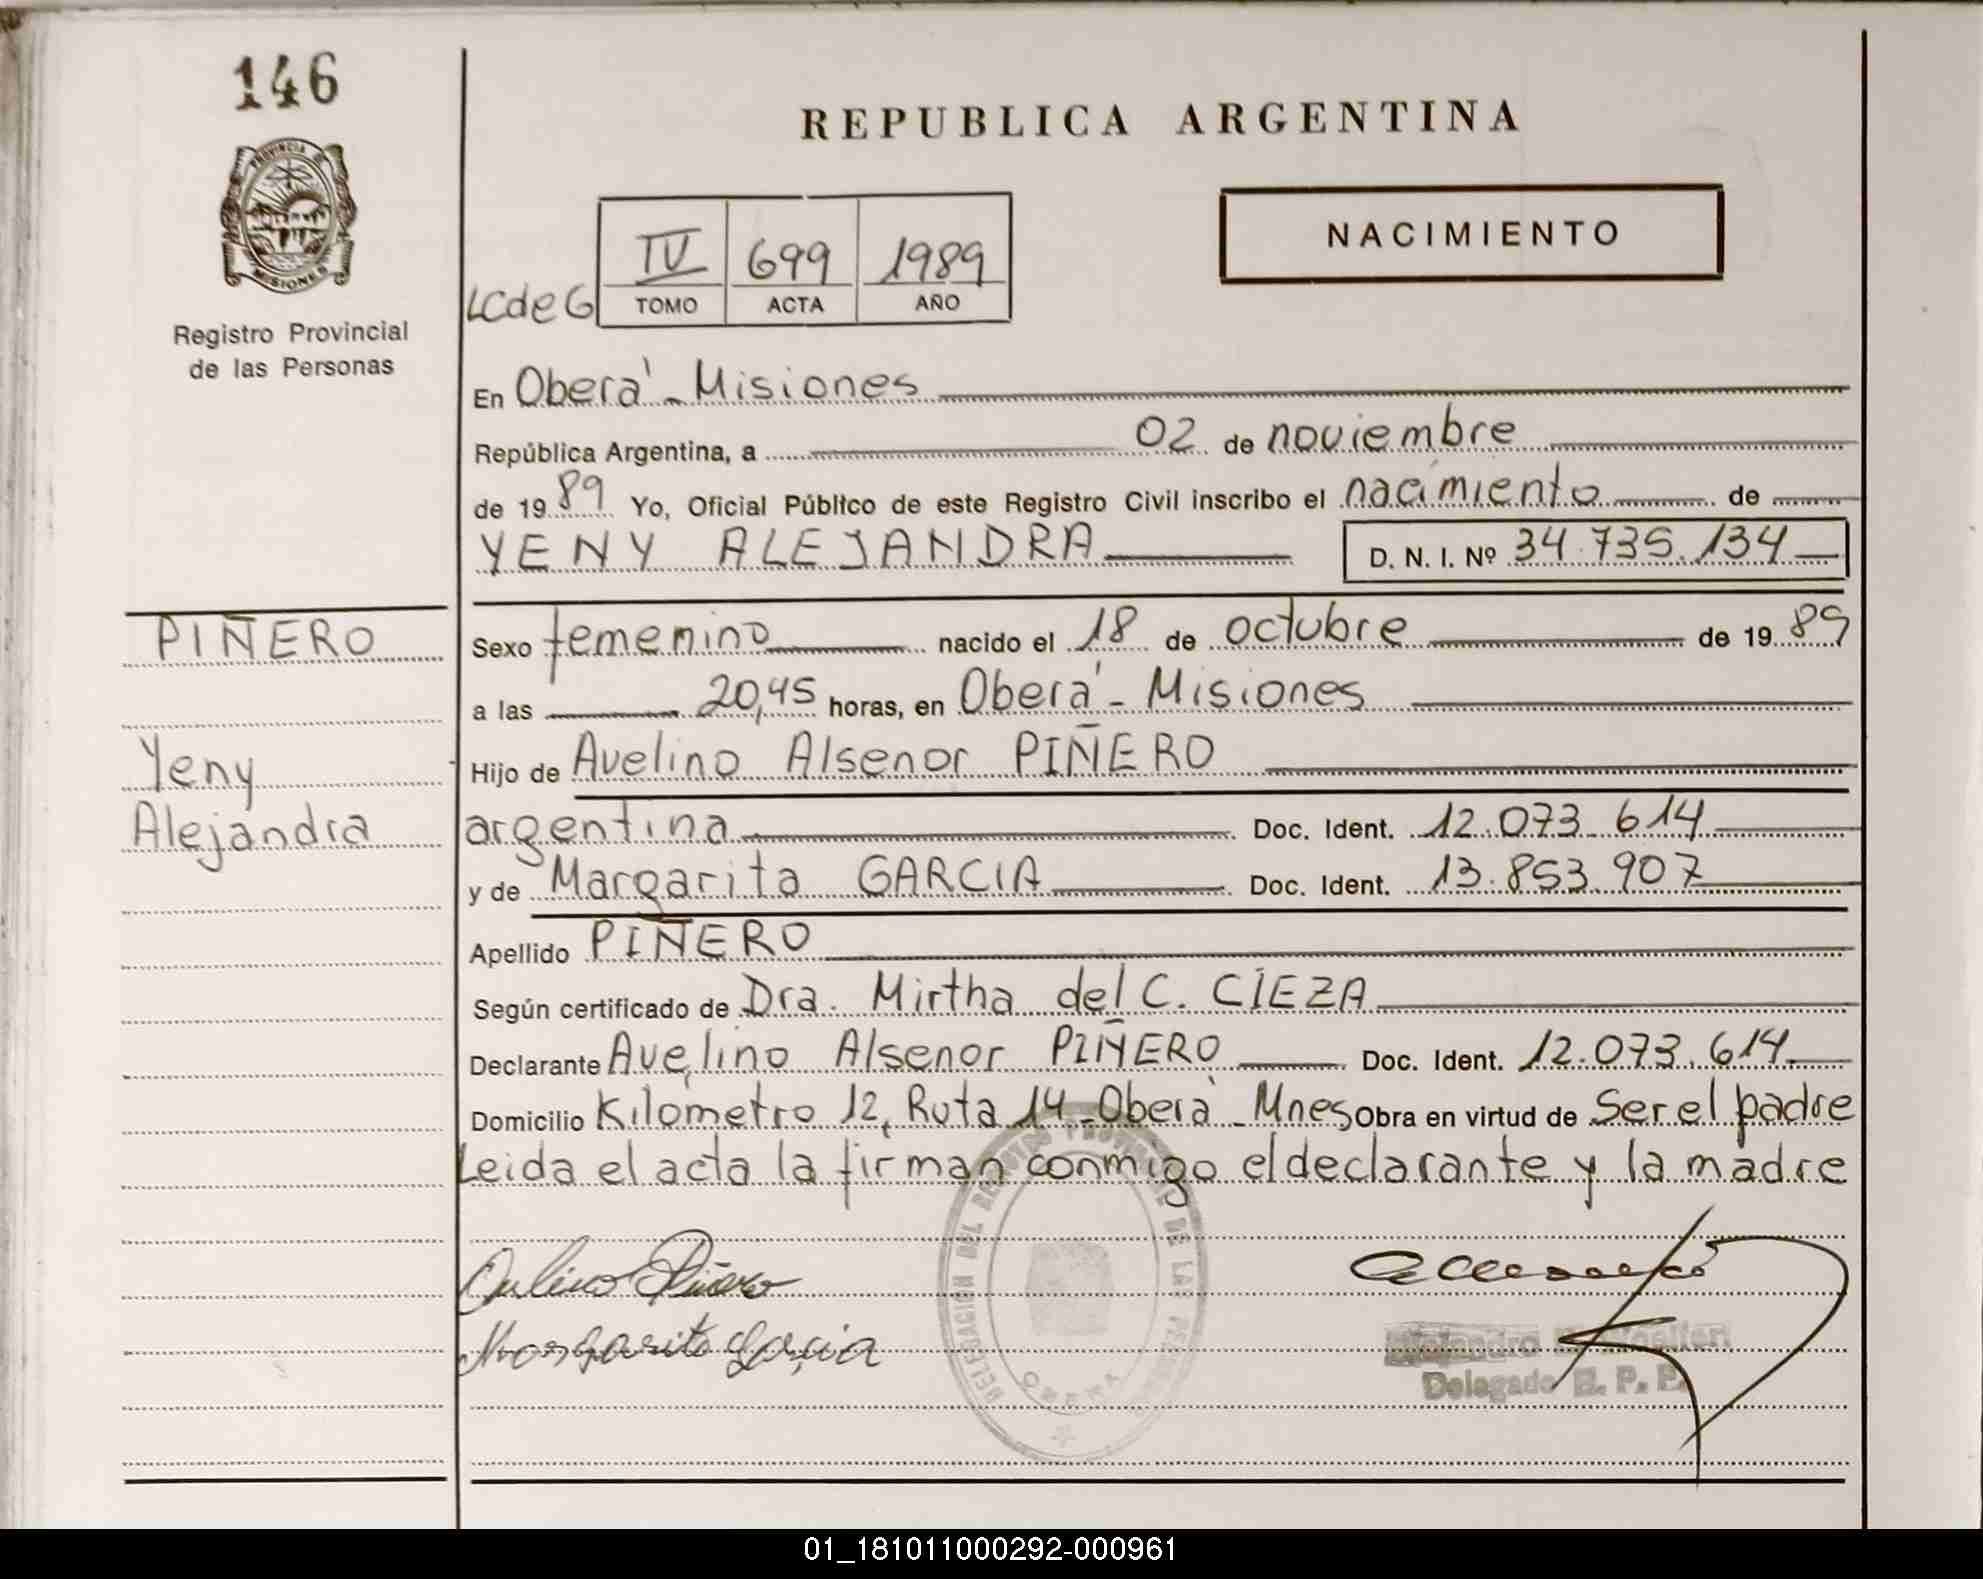 146
PROVINCIA DE
MISIONES
Registro Provincial
de las Personas
REPUBLICA ARGENTINA
NACIMIENTO
LC de G
IV 699 1989
TOMO ACTA AÑO
En Oberá - Misiones
República Argentina, a 02 de noviembre
de 1989 Yo, Oficial Público de este Registro Civil inscribo el nacimiento de
YENY ALEJANDRA D. N. I. Nº 34.735.134
PIÑERO
Yeny
Alejandra
Sexo femenino nacido el 18 de octubre de 1989
a las 20,45 horas, en Oberá - Misiones
Hijo de Avelino Alsenor PIÑERO
argentina Doc. Ident. 12.073.614
y de Margarita GARCIA Doc. Ident. 13.853.907
Apellido PIÑERO
Según certificado de Dra. Mirtha del C. CIEZA
Declarante Avelino Alsenor PIÑERO Doc. Ident. 12.073.614
Domicilio Kilometro 12, Ruta 14 - Oberá - Mnes Obra en virtud de Ser el padre
Leida el acta la firman conmigo el declarante y la madre
Avelino Piñero
Margarita Garcia
DELEGACION DEL REGISTRO PROVINCIAL DE LAS PERSONAS
OBERA
Alejandro
Delegado R. P. P.
01_181011000292-000961